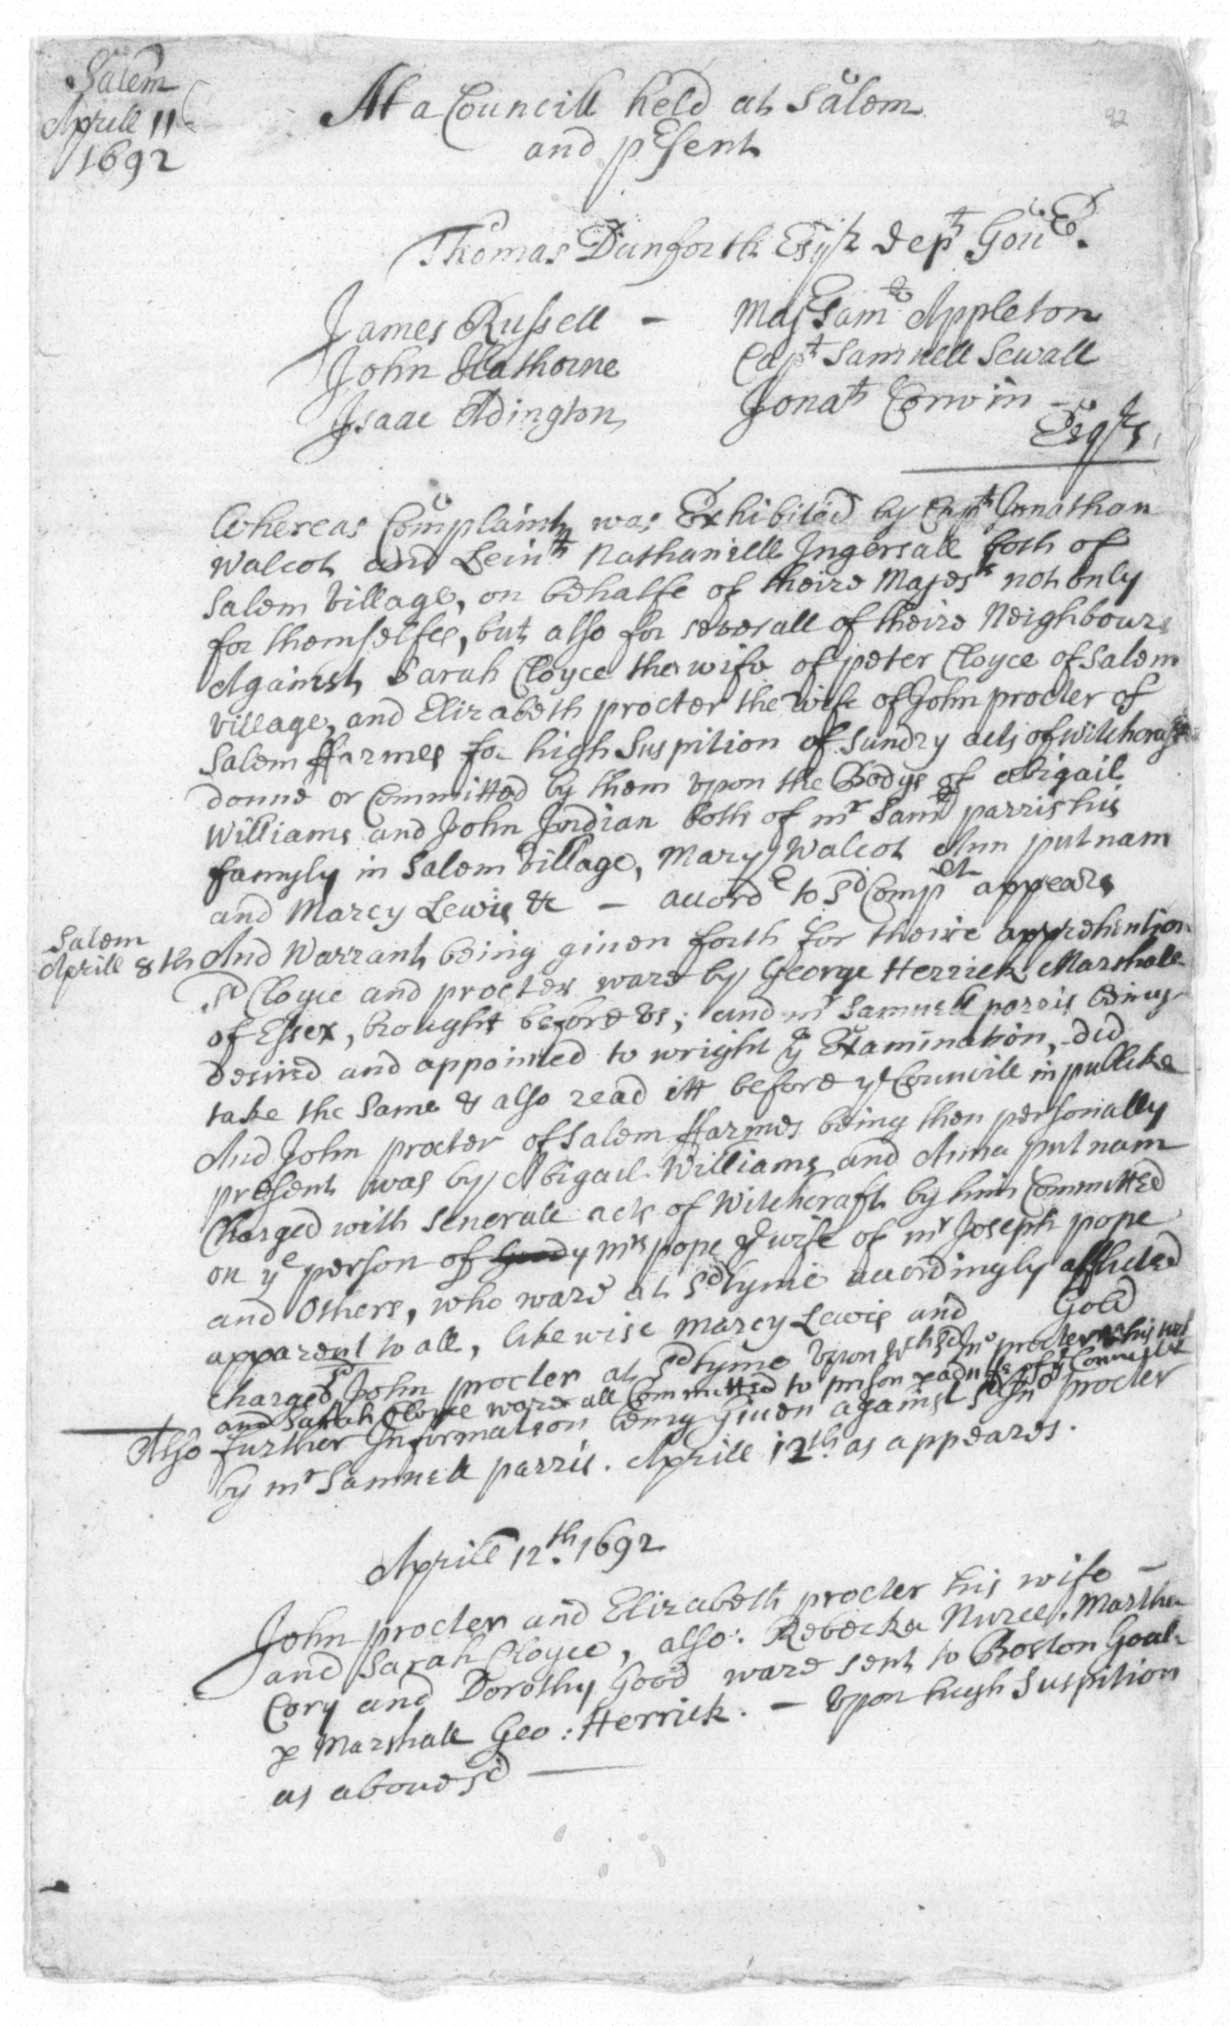 Salem
Aprill 11
1692
92
At a Councill held at Salem
and p̄sent
Thomas Danforth Esqr dept Gour.
James Russell – Maj Samll Appleton
John Hathorne Capt Samuell Sewall
Isaac Adington Jonath Corwin –
Esqrs
Whereas Complaint was Exhibited by Capt Jonathan
Walcot and Leint Nathaniell Ingersall both of
Salem Village, on behalfe of theire Majesties not only
for themselfes, but also for severall of theire Neighbours
Against Sarah Cloyce the wife of peter Cloyce of Salem
Village, and Elizabeth procter the wife of John procter of
Salem ffarmes for high Suspition of Sundry acts of witchcraft
donne or Committed by them upon the Bodys of abigail
Williams and John Jndian both of mr Saml parris his
famyly in Salem Village, Mary Walcot Ann putnam
and Marcy Lewis &c – accord to sd Complt appeares
Salem
Aprill 8th
And Warrant being giuen forth for theire apprehention
sd Cloyce and procter ware by George Herrick Marshall
of Essex, brought before us; and mr Samuell parris being
desired and appointed to wright ye Examination, did
take the same & also read itt before ye Councill in publike
And John procter of Salem ffarmes being then personally
present was by Abigail Williams and Anna putnam
Charged with severall acts of Witchcraft by him Committed
on ye person of Goody mrs pope ye wife of mr Joseph pope
and others, who ware at sd tyme accordingly afflicted
apparent to all, likewise Marcy Lewis and Gold
charged sd John procter at sd tyme Upon wh sd Jno procter & his wife
and Sarah Cloyce ware all Committed to prison p aduise of ye Councill
Also further Jnformation being Giuen against sd Jno procter
by mr Samuell parris. Aprill 12th as appeares.
Aprill 12th. 1692
John procter and Elizabeth procter his wife –
and Sarah Cloyce, also: Rebecka Nurce. Martha
Cory and Dorothy Good ware sent to Boston Goal
p Marshall Geo: Herrick. – Upon high Suspition
as aboue sd